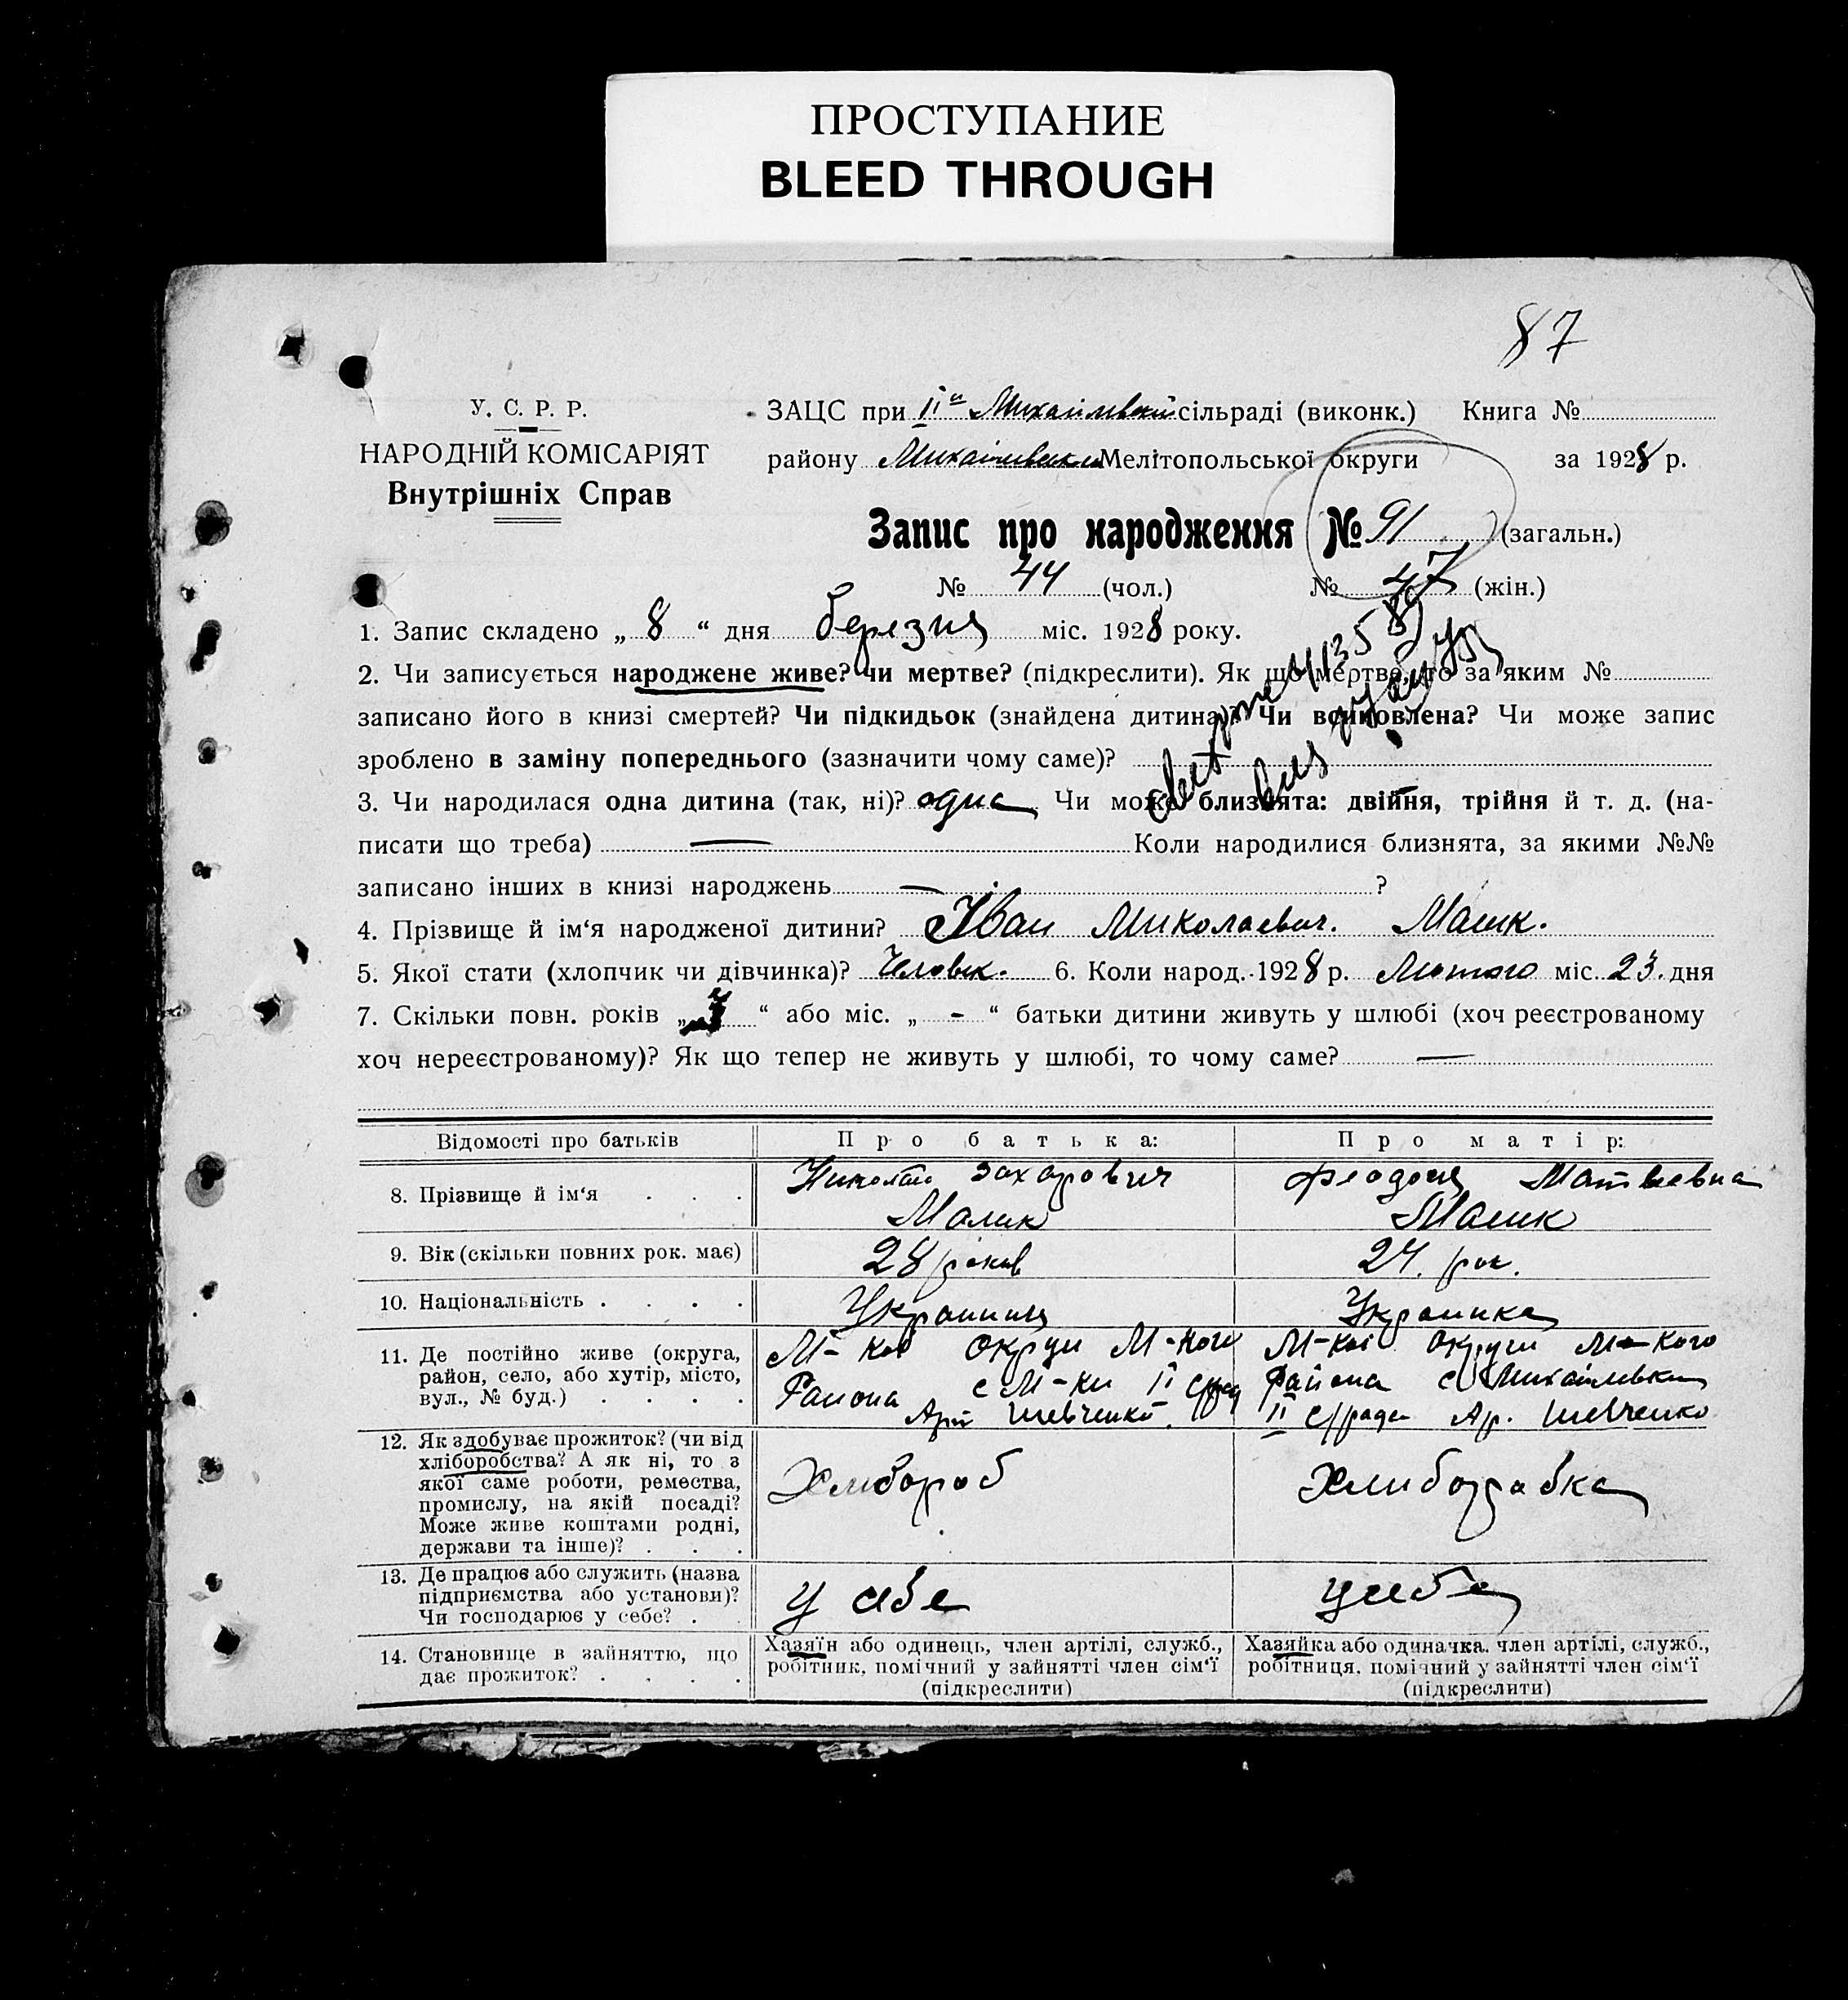 ПРОСТУПАНИЕ
BLEED THROUGH
87
У. С. Р. Р.
НАРОДНІЙ КОМІСАРІЯТ
Внутрішніх Справ
ЗАЦС при ІІй Михайлівській сільраді (виконк.) Книга №
району Михайлівськ Мелітопольської округи за 1928 р.
Запис про народження № 91 (загальн.)
№ 44 (чол.) № 47 (жін.)
1. Запис складено „ 8 “ дня березня міс. 1928 року.
2. Чи записується народжене живе? чи мертве? (підкреслити). Як що мертве, то за яким №
записано його в книзі смертей? Чи підкидьок (знайдена дитина)? Чи всиновлена? Чи може запис
зроблено в заміну попереднього (зазначити чому саме)?
3. Чи народилася одна дитина (так, ні)? одна Чи може близнята: двійня, трійня й т. д. (на-
писати що треба) — Коли народилися близнята, за якими №№
записано інших в книзі народжень — ?
4. Прізвище й ім‘я народженої дитини? Іван Миколаевич. Малик.
5. Якої стати (хлопчик чи дівчинка)? Человік. 6. Коли народ. 1928 р. Лютого міс. 23. дня
7. Скільки повн. років „ “ або міс. „ - “ батьки дитини живуть у шлюбі (хоч реєстрованому
хоч нереєстрованому)? Як що тепер не живуть у шлюбі, то чому саме? —
Відомості про батьків Про батька: Про матір:
8. Прізвище й ім‘я Николай Захарович Феодосия Матвеевна
Малик Малик
9. Вік (скільки повних рок. має) 28 років 24. рок.
10. Національність Украинец Украинка
11. Де постійно живе (округа, М-кої Округи М-кого М-кої округи М-кого
район, село, або хутір, місто, Района с М-ки ІІ с/рад Района с Михайлівки
вул., № буд.) Арт Шевченко. ІІ с/ради Ар. Шевченко
12. Як здобуває прожиток? (чи від
хліборобства? А як ні, то з
якої саме роботи, ремества, Хлибороб Хлиборобка
промислу, на якій посаді?
Може живе коштами родні,
держави та інше)?
13. Де працює або служить (назва
підприємства або установи)? у себе у себе
Чи господарює у себе?
14. Становище в зайняттю, що Хазяїн або одинець, член артілі, служб., Хазяйка або одиначка. член артілі, служб.,
дає прожиток? робітник, помічний у зайнятті член сім‘ї робітниця, помічний у зайнятті член сім‘ї
(підкреслити) (підкреслити)